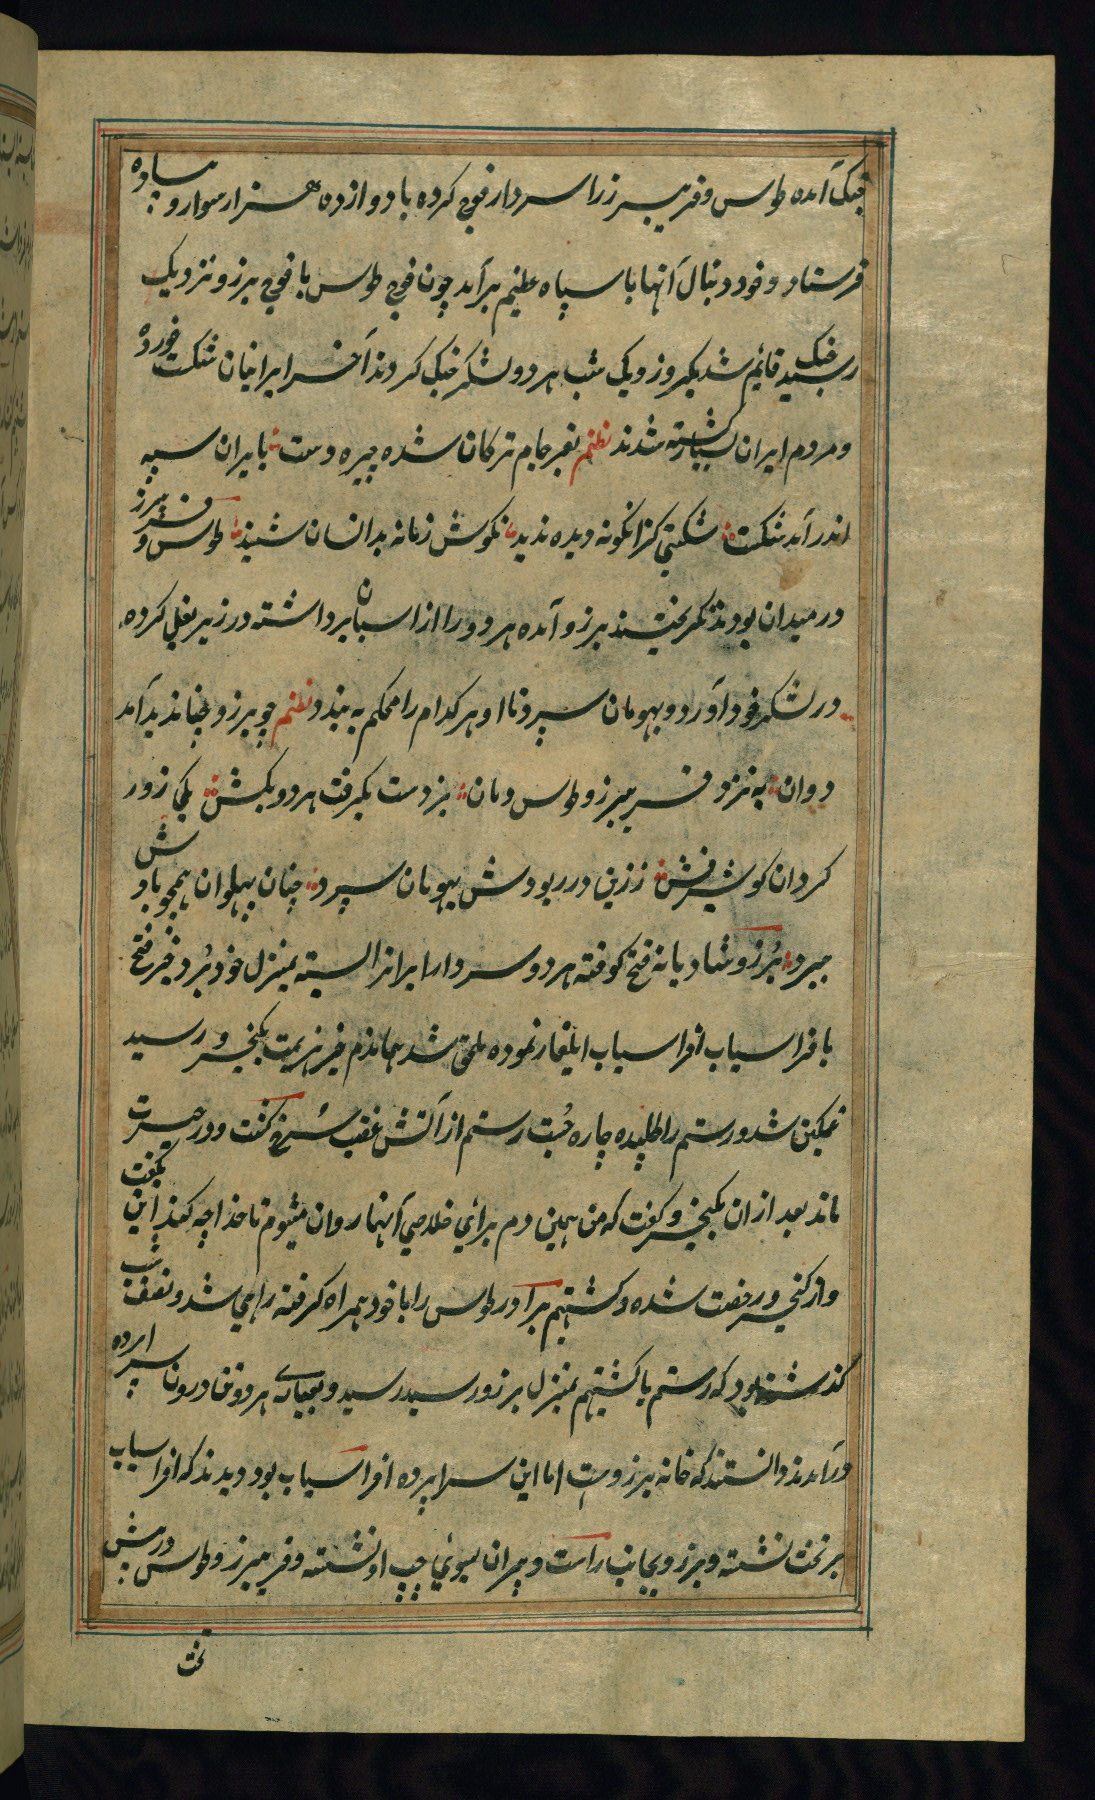 جنک آمده طوس و فریبرز را سردار فوج کرده با دوازده هزار سوار و پیاده
فرستاد و خود دنبال آنها با سپاه عظیم برآمد چون فوج طوس با فوج برزو نزدیک
رسید جنک قائیم شد یکروز و یک شب هر دو لشکر جنک کردند آخر ایرانیان شکست خورده
و مردم ایران بسیار کشته شدند نظم بفرجام ترکان شده چیره دست بایران سپه
اندر آمد شکست شکستی کزانکونه دیده ندید نکوش زمانه بدانسان شنید طوس و فریبرز
در میدان بودند نکریختند برزو آمده هر دو را از اسپان برداشته در زیر بغل کرده
در لشکر خود آورد و بهومان سپرد تا او هر کدام را محکم به بندد نظم چو برزو چنان دید آمد
دوان به نزد فریبرز و طوس دمان بزد دست بکرفت هر دو بکش یکی زور
کرد آن کو شیرفش ز زین در ربودش بهومان سپرد چنان پهلوان همچو بادش
ببرد برزو شادیانه فتح کوفته هر دو سردار ایران را بسته بمنزل خود برد و خبر فتح
بافراسیاب افراسیاب ایلغار نموده ملحق شد هماندم خبر هزیمت بکیخسرو رسید
غمکین شد و رستم را طلبیده چاره جست رستم از آتش غضب سرخ کشت و در حیرت
ماند بعد از ان بکیخسرو کفت که من همین دم برائی خلاصی آنها روان میشوم تا خدا چه کند این بکفت
و از کیخسرو رخصت شده و کشتهم برادر طوس را با خود همراه کرفته راهی شد و نصف شب
کذشته بود که رستم با کشتهم بمنزل برزو رسید و بعیاری هر دو تن درون سراپرده
درآمدند دانستند که خانه برزوست اما این سراپرده افراسیاب بود دیدند که افراسیاب
بر تخت نشسته و برزو بجانب راست و پیران بسوئی چپ او نشسته و فریبرز و طوس در پیش
تخت